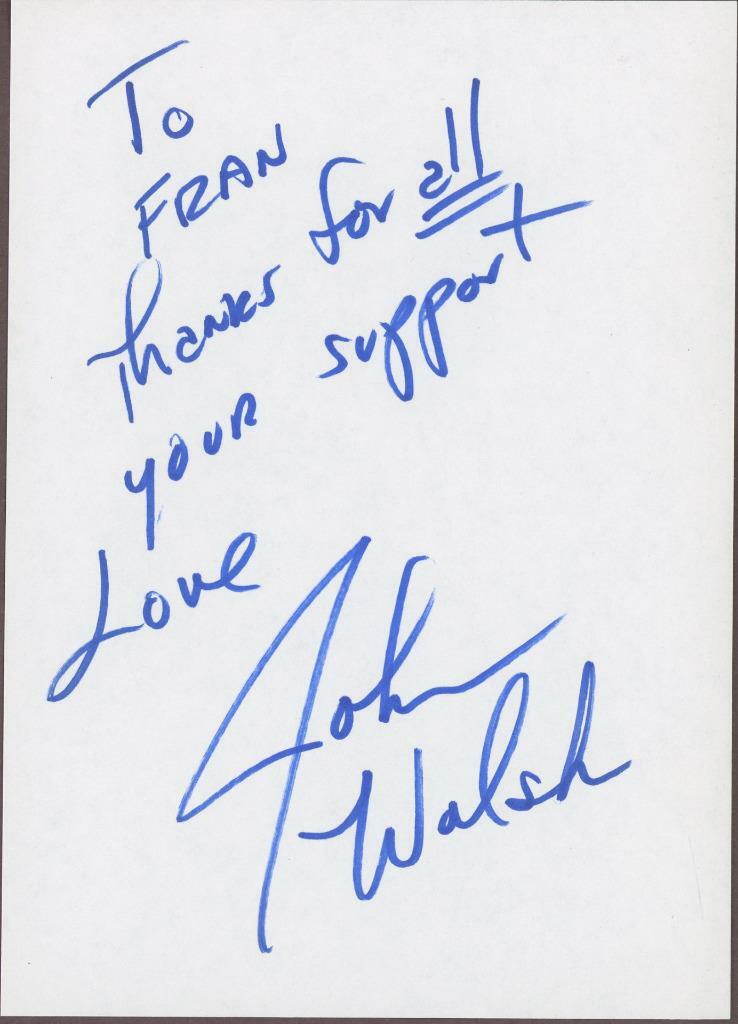 To
FRAN
Thanks for all
your support
Love
John
Walsh